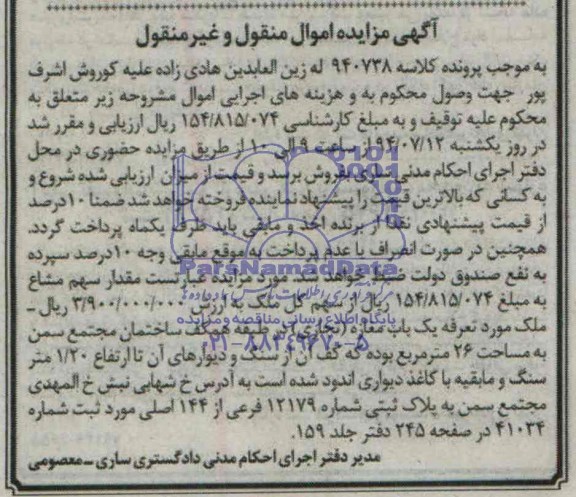 آگهی مزایده اموال منقول و غیر منقول
به موجب پرونده کلاسه ۹۴۰۷۳۸ له زین العابدین هادی زاده علیه کوروش اشرف
پور جهت وصول محکوم به و هزینه های اجرایی اموال مشروحه زیر متعلق به
محکوم علیه توقیف و به مبلغ کارشناسی ۱۵۴/۸۱۵/۰۷۴ ریال ارزیابی و مقرر شد
در روز یکشنبه ۹۴/۰۷/۱۲ از ساعت ۹ الی ۱۰ از طریق مزایده حضوری در محل
دفتر اجرای احکام مدنی ساری بفروش برسد و قیمت از میزان ارزیابی شده شروع و
به کسانی که بالاترین قیمت را پیشنهاد نماینده فروخته خواهد شد ضمنا ۱۰ درصد
از قیمت پیشنهادی نقدا از برنده اخذ و مابقی باید ظرف یکماه پرداخت گردد.
همچنین در صورت انصراف یا عدم پرداخت به موقع مابقی وجه ۱۰ درصد سپرده
به نفع صندوق دولت ضبط خواهد شد. مورد مزایده عبارتست مقدار سهم مشاع
به مبلغ ۱۵۴/۸۱۵/۰۷۴ ریال از سهم کل ملک به ارزش ۳/۹۰۰/۰۰۰/۰۰۰ ریال ـ
ملک مورد تعرفه یک باب مغازه (تجاری) در طبقه همکف ساختمان مجتمع سمن
به مساحت ۲۶ مترمربع بوده که کف آن از سنگ و دیوارهای آن تا ارتفاع ۱/۲۰ متر
سنگ و مابقیه با کاغذ دیواری اندود شده است به آدرس خ شهابی نبش خ المهدی
مجتمع سمن به پلاک ثبتی شماره ۱۲۱۷۹ فرعی از ۱۴۴ اصلی مورد ثبت شماره
۴۱۰۳۴ در صفحه ۲۴۵ دفتر جلد ۱۵۹.
مدیر دفتر اجرای احکام مدنی دادگستری ساری ـ معصومی
ParsNamadData
پایگاه اطلاع رسانی مناقصه و مزایده
۰۲۱-۸۸۳۴۹۶۷۰-۵